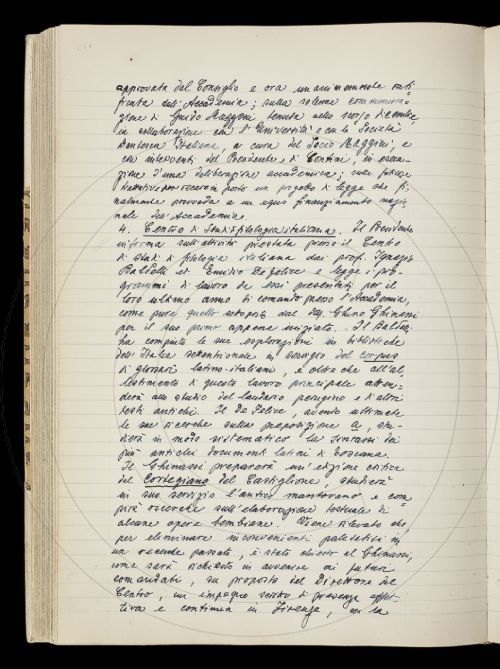 approvata dal Consiglio e ora unanimemente rati-
ficata dall'Accademia; sulla solenne commemora-
zione di Guido Mazzoni tenuta nello scorso dicembre
in collaborazione con l'Università e con la Società
Dantesca Italiana, a cura del Socio Maggini, e
con interventi del Presidente e di Contini, in esecu-
zione d'una deliberazione accademica; sulle
trattative per un progetto di legge che fi-
nalmente provveda a un equo finanziamento
nale dell'Accademia.
4. Centro di Studi di filologia italiana. Il Presidente
informa sull'attività prestata presso il Centro
di studi di filologia italiana dai prof. Ignazio
Baldelli ed Emilio De Felice e legge i pro-
grammi di lavoro da essi presentati per il
loro ultimo anno di comando presso l'Accademia,
come pure quello sottoposto dal dott. Ghino Ghinassi
per il suo primo appena iniziato. Il Baldelli
ha compiuto le sue esplorazioni in biblioteche
dell'Italia settentrionale in servizio del corpus
di glossari latino-italiani, e oltre che all'al-
lestimento di questo lavoro principale atten-
derà allo studio del laudario perugino e d'altri
testi antichi. Il De Felice, avendo ultimate
le sue ricerche sulla preposizione a, stu-
dierà in modo sistematico la sintassi dei
più antichi documenti latini di Toscana.
Il Ghinassi preparerà un'edizione critica
del Cortegiano del Castiglione, studierà
in suo servizio l'antico mantovano e com-
pirà ricerche sull'elaborazione testuale di
alcune opere bembiane. Viene rilevato che,
per eliminare inconvenienti palesatisi in
un recente passato, è stato chiesto al Ghinassi,
come sarà richiesto in avvenire ai futuri
comandati, su proposta del Direttore del
Centro, un impegno scritto di presenza effet-
tiva e continua in Firenze, con la